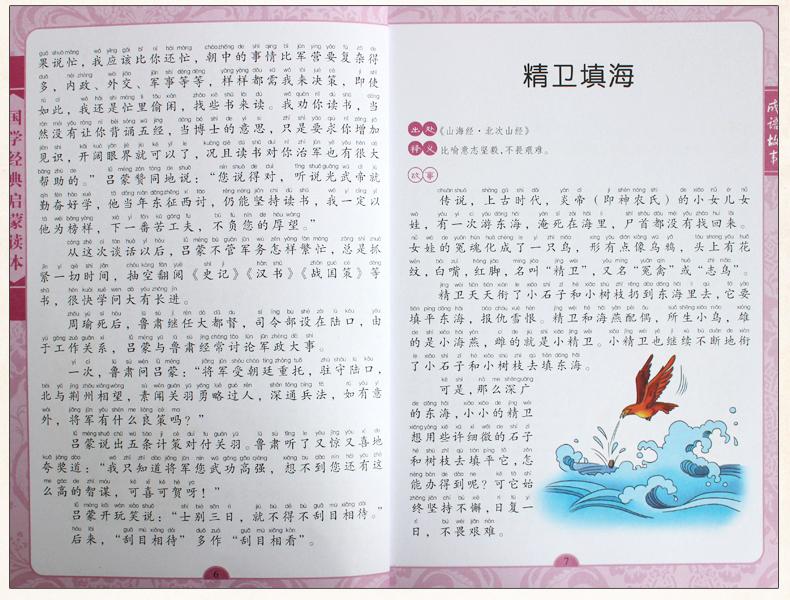 国学经典启蒙读本
果说忙，我应该比你还忙，朝中的事情比军营要复杂得
多，内政、外交、军事等等，样样都需我来决策，即使
如此，我还是忙里偷闲，找些书来读。我劝你读书，当
然没有让你背诵五经，当博士的意思，只是要求你增加
见识，开阔眼界就可以了，况且读书对你治军也有很大
帮助的。”吕蒙赞同地说：“您说得对，听说光武帝就
勤奋好学，他当年东征西讨，仍能坚持读书，我一定以
他为榜样，下一番苦工夫，不负您的厚望。”
从这次谈话以后，吕蒙不管军务怎样繁忙，总是抓
紧一切时间，抽空翻阅《史记》《汉书》《战国策》等
书，很快学问大有长进。
周瑜死后，鲁肃继任大都督，司令部设在陆口，由
于工作关系，吕蒙与鲁肃经常讨论军政大事。
一次，鲁肃问吕蒙：“将军受朝廷重托，驻守陆口，
北与荆州相望，素闻关羽勇略过人，深通兵法，如有意
外，将军有什么良策吗？”
吕蒙说出五条计策对付关羽。鲁肃听了又惊又喜地
夸奖道：“我只知道将军您武功高强，想不到您还有这
么高的智谋，可喜可贺呀！”
吕蒙开玩笑说：“士别三日，就不得不刮目相待。”
后来，“刮目相待”多作“刮目相看”。
6
成语故事
精卫填海
出处《山海经·北次山经》
释义 比喻意志坚毅，不畏艰难。
故事
传说，上古时代，炎帝（即神农氏）的小女儿女
娃，有一次游东海，淹死在海里，尸首都没有找回来。
女娃的冤魂化成了一只鸟，形有点像乌鸦，头上有花
纹，白嘴，红脚，名叫“精卫”，又名“冤禽”或“志鸟”。
精卫天天衔了小石子和小树枝扔到东海里去，它要
填平东海，报仇雪恨。精卫和海燕配偶，所生小鸟，雄
的是小海燕，雌的就是小精卫。小精卫也继续不断地衔
了小石子和小树枝去填东海。
可是，那么深广
的东海，小小的精卫
想用些许细微的石子
和树枝去填平它，怎
能办得到呢？可它始
终坚持不懈，日复一
日，不畏艰难。
7